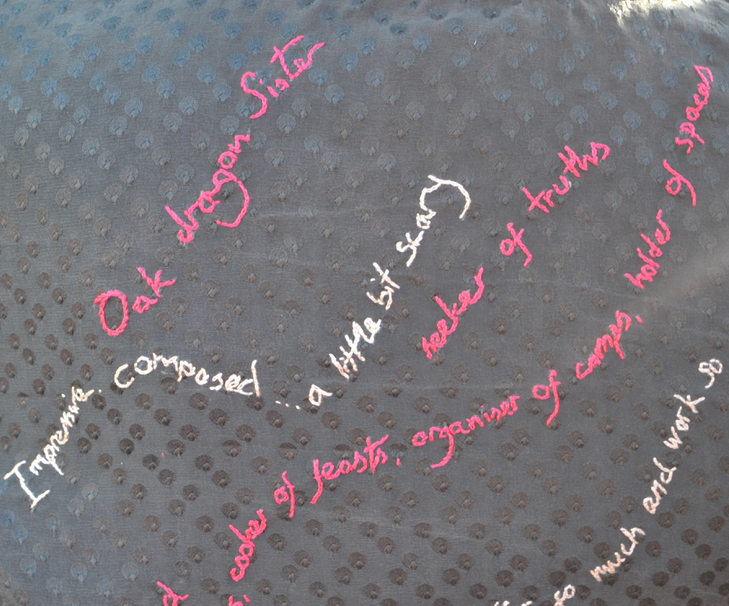 Oak dragon Sister
Impressive, composed ... a little bit scary
seeker of truths
cooker of feasts, organiser of camps, holder of spaces
so much and work so